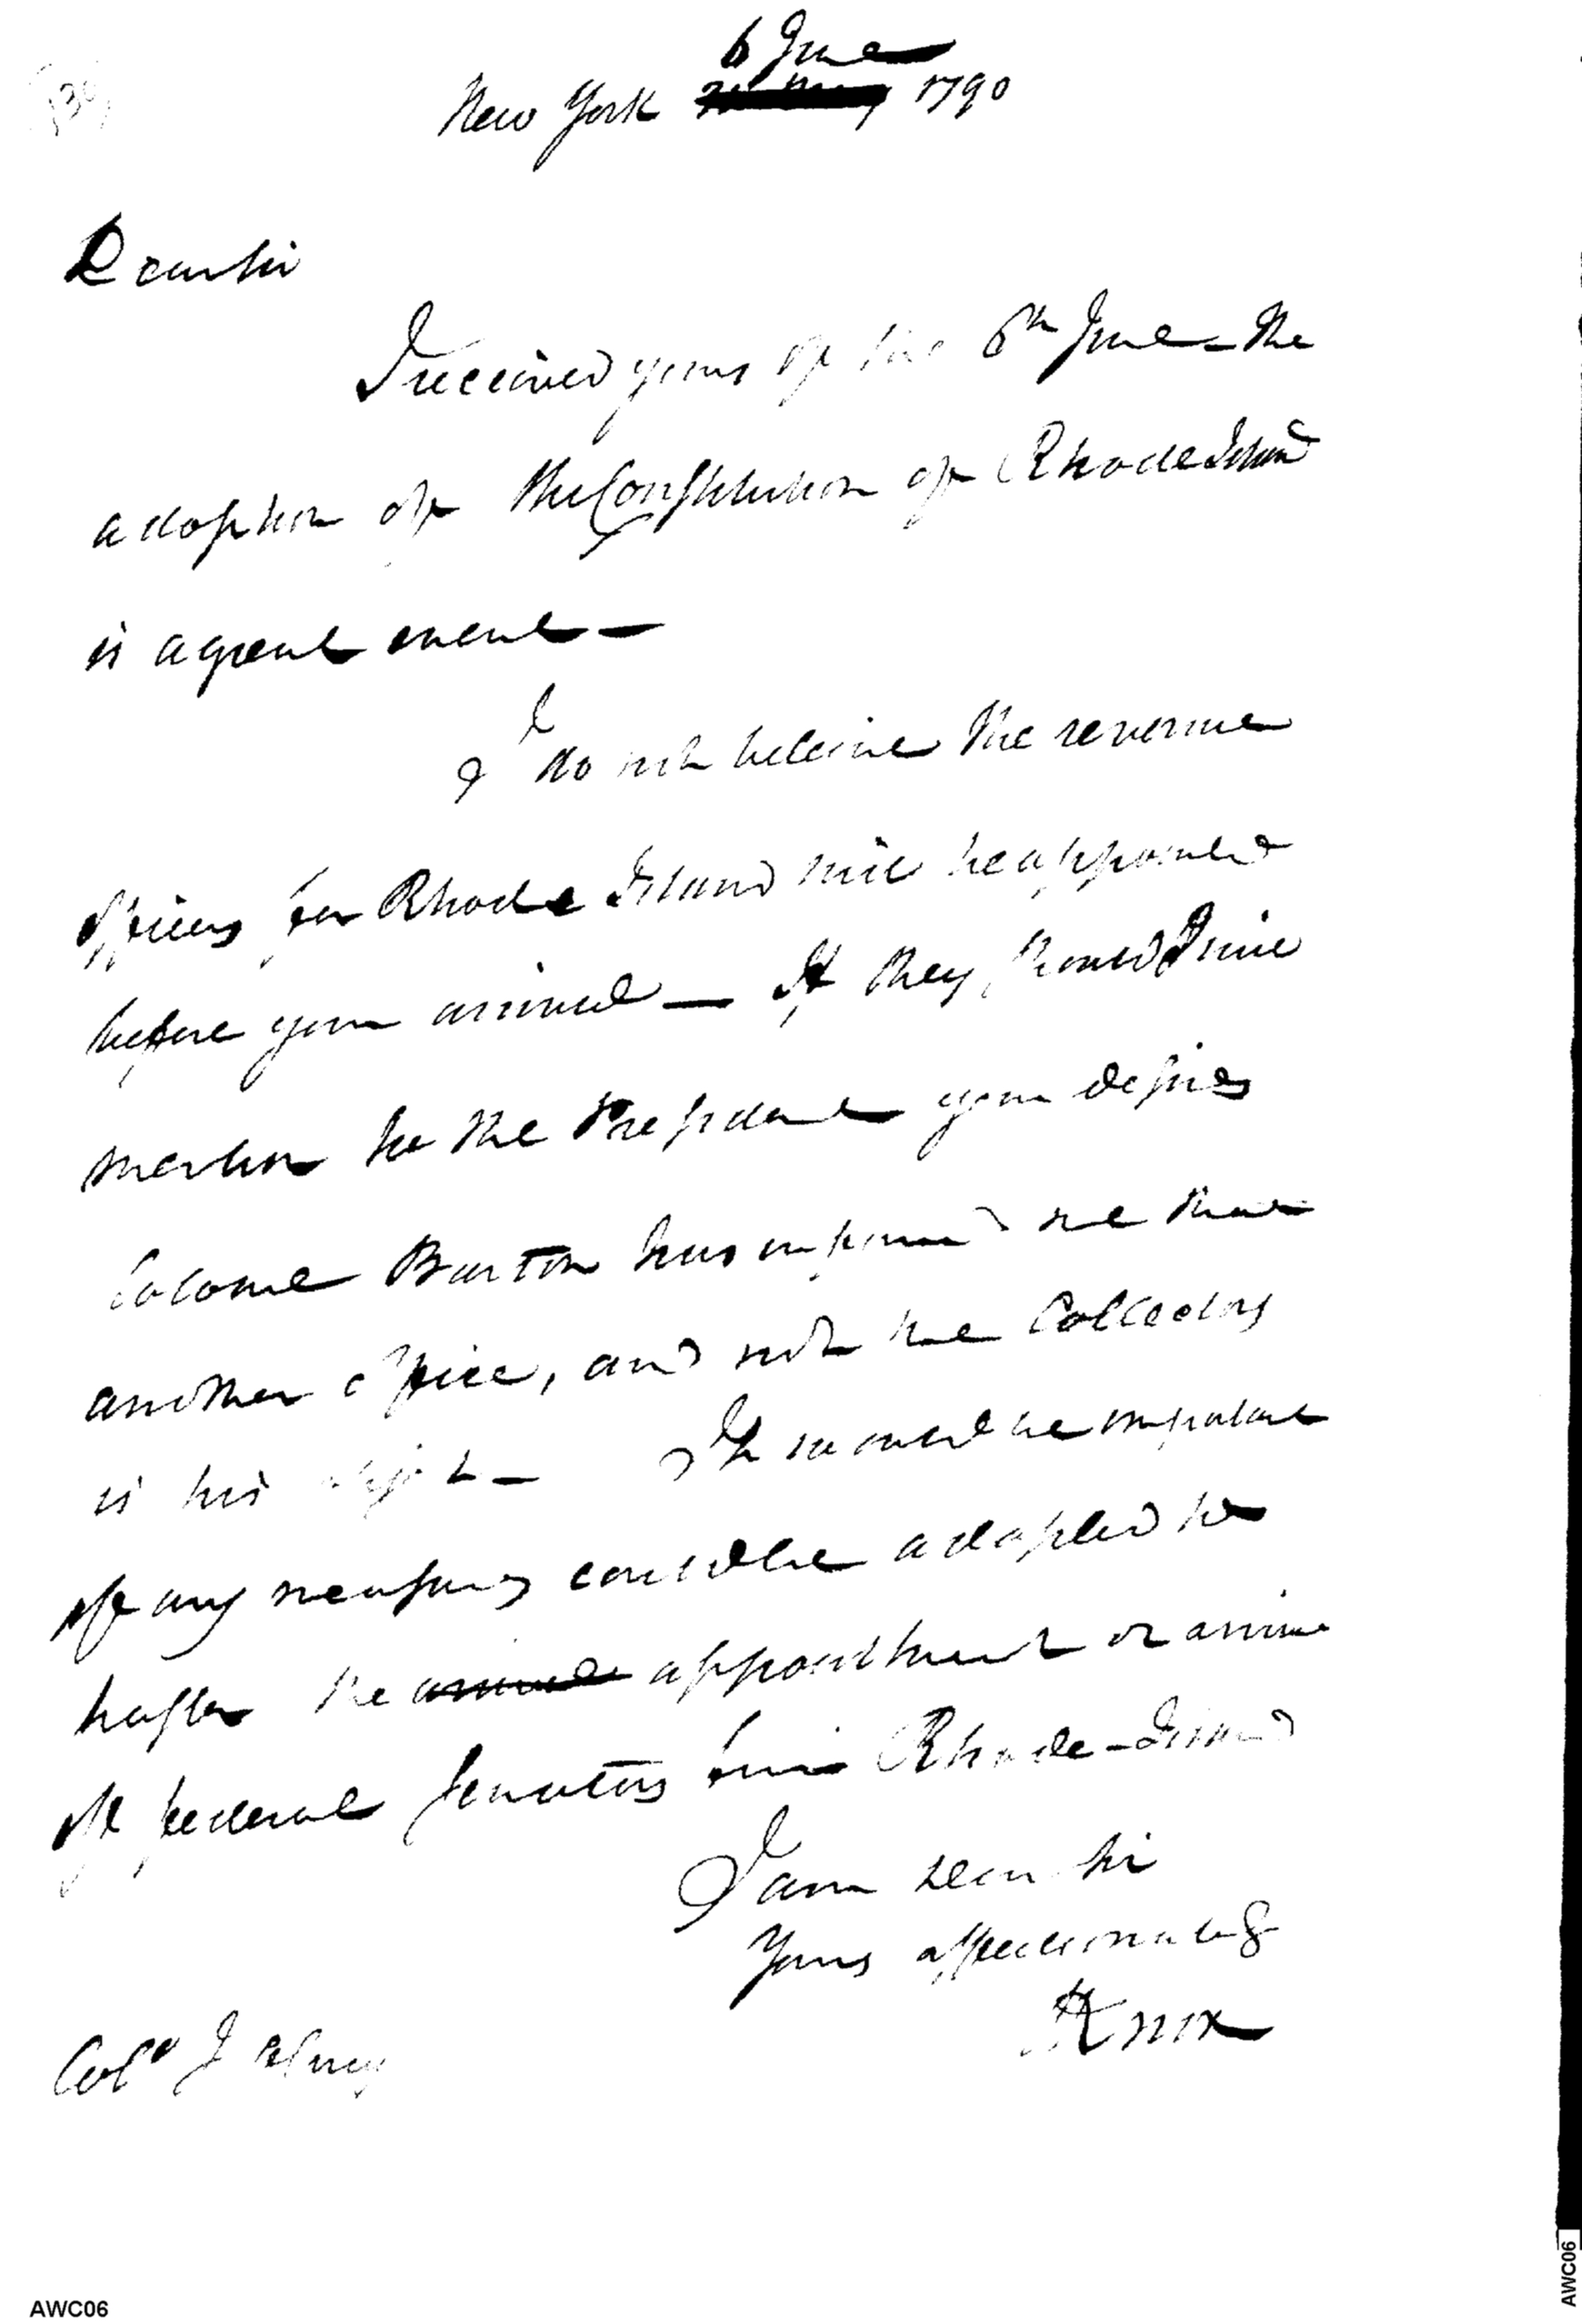 6 June
New York 1790
Dear sir
I received yours of the 6th June – the
adoption of the Constitution of Rhode Island
is a great event –
I do not believe the revenue
officers for Rhode Island will be appointed
before your arrival – If they should I will
mention to the President your desires
Colonel Barton has informed me that
another office, and not the Collectors
is his object – It would be important
if any measures could be adopted to
hasten the appointment or arrival
of federal Senators from Rhode-Island
I am dear sir
Yours affectionately
HKnox
Colo J
AWC06
AWC06